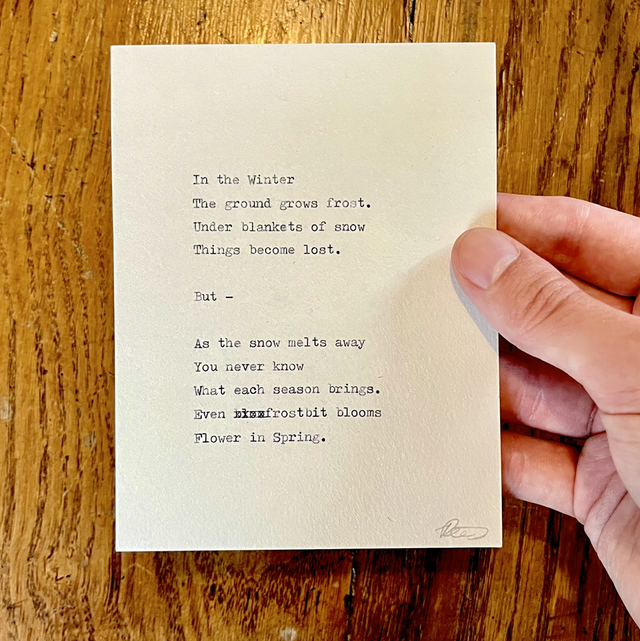 In the Winter
The ground grows frost.
Under blankets of snow
Things become lost.
But -
As the snow melts away
You never know
What each season brings.
Even frostbit blooms
Flower in Spring.